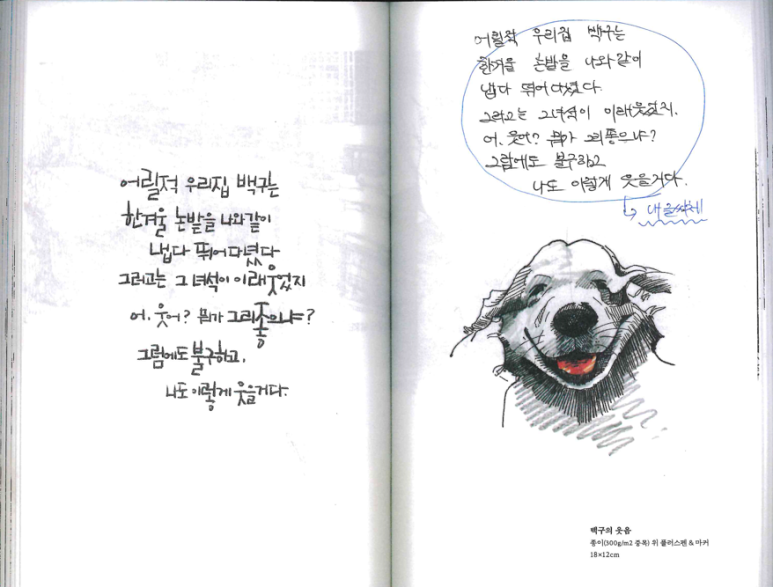 어릴적 우리집 백구는
한겨울 논밭을 나와같이
냅다 뛰어다녔다
그러고는 그녀석이 이래웃었지
어, 웃어? 뭐가 그리좋으냐?
그럼에도불구하고,
나도이렇게 웃을거다.
어릴적 우리집 백구는
한겨울 논밭을 나와같이
냅다 뛰어다녔다.
그러고는 그녀석이 이래웃었지.
어, 웃어? 뭐가 그리좋으냐?
그럼에도 불구하고
나도 이렇게 웃을거다.
내 글씨체
백구의 웃음
종이(300g/m2 중목) 위 플러스펜 & 마커
18×12cm